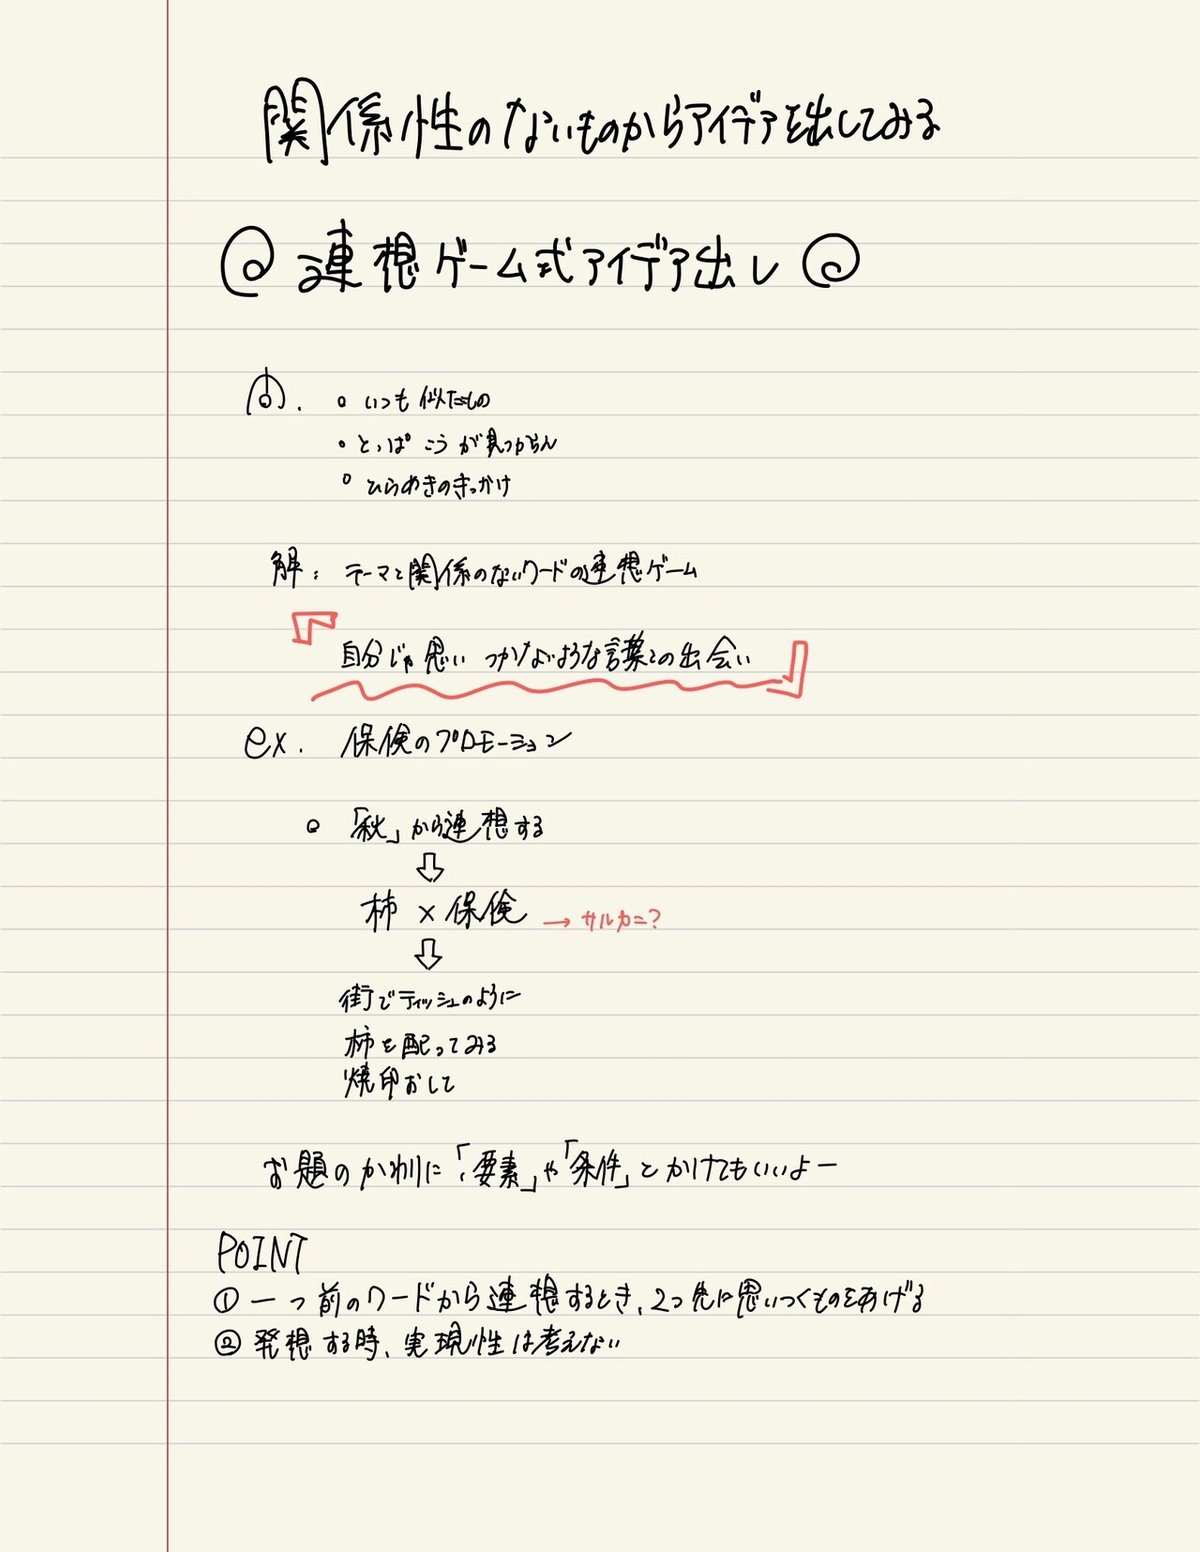 関係性のないものからアイデアを出してみる
連想ゲーム式アイデア出し
問. ・いつも似たもの
・とっぱこうが見つからん
・ひらめきのきっかけ
解: テーマと関係のないワードの連想ゲーム
『自分じゃ思いつかないような言葉との出会い』
ex. 保険のプロモーション
・「秋」から連想する
⇩
柿×保険 → サルカニ?
⇩
街でティッシュのように
柿を配ってみる
焼印おして
お題のかわりに「要素」や「条件」とかけてもいいよー
POINT
① 一つ前のワードから連想するとき、2つ先に思いつくものをあげる
② 発想する時、実現性は考えない